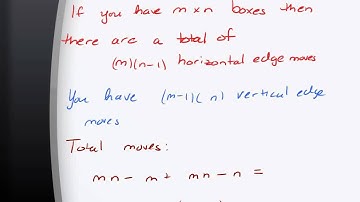 If you have m x n boxes then
there are a total of
(m)(n-1) horizontal edge moves
You have (m-1)(n) vertical edge
moves
Total moves:
mn - m + mn - n =